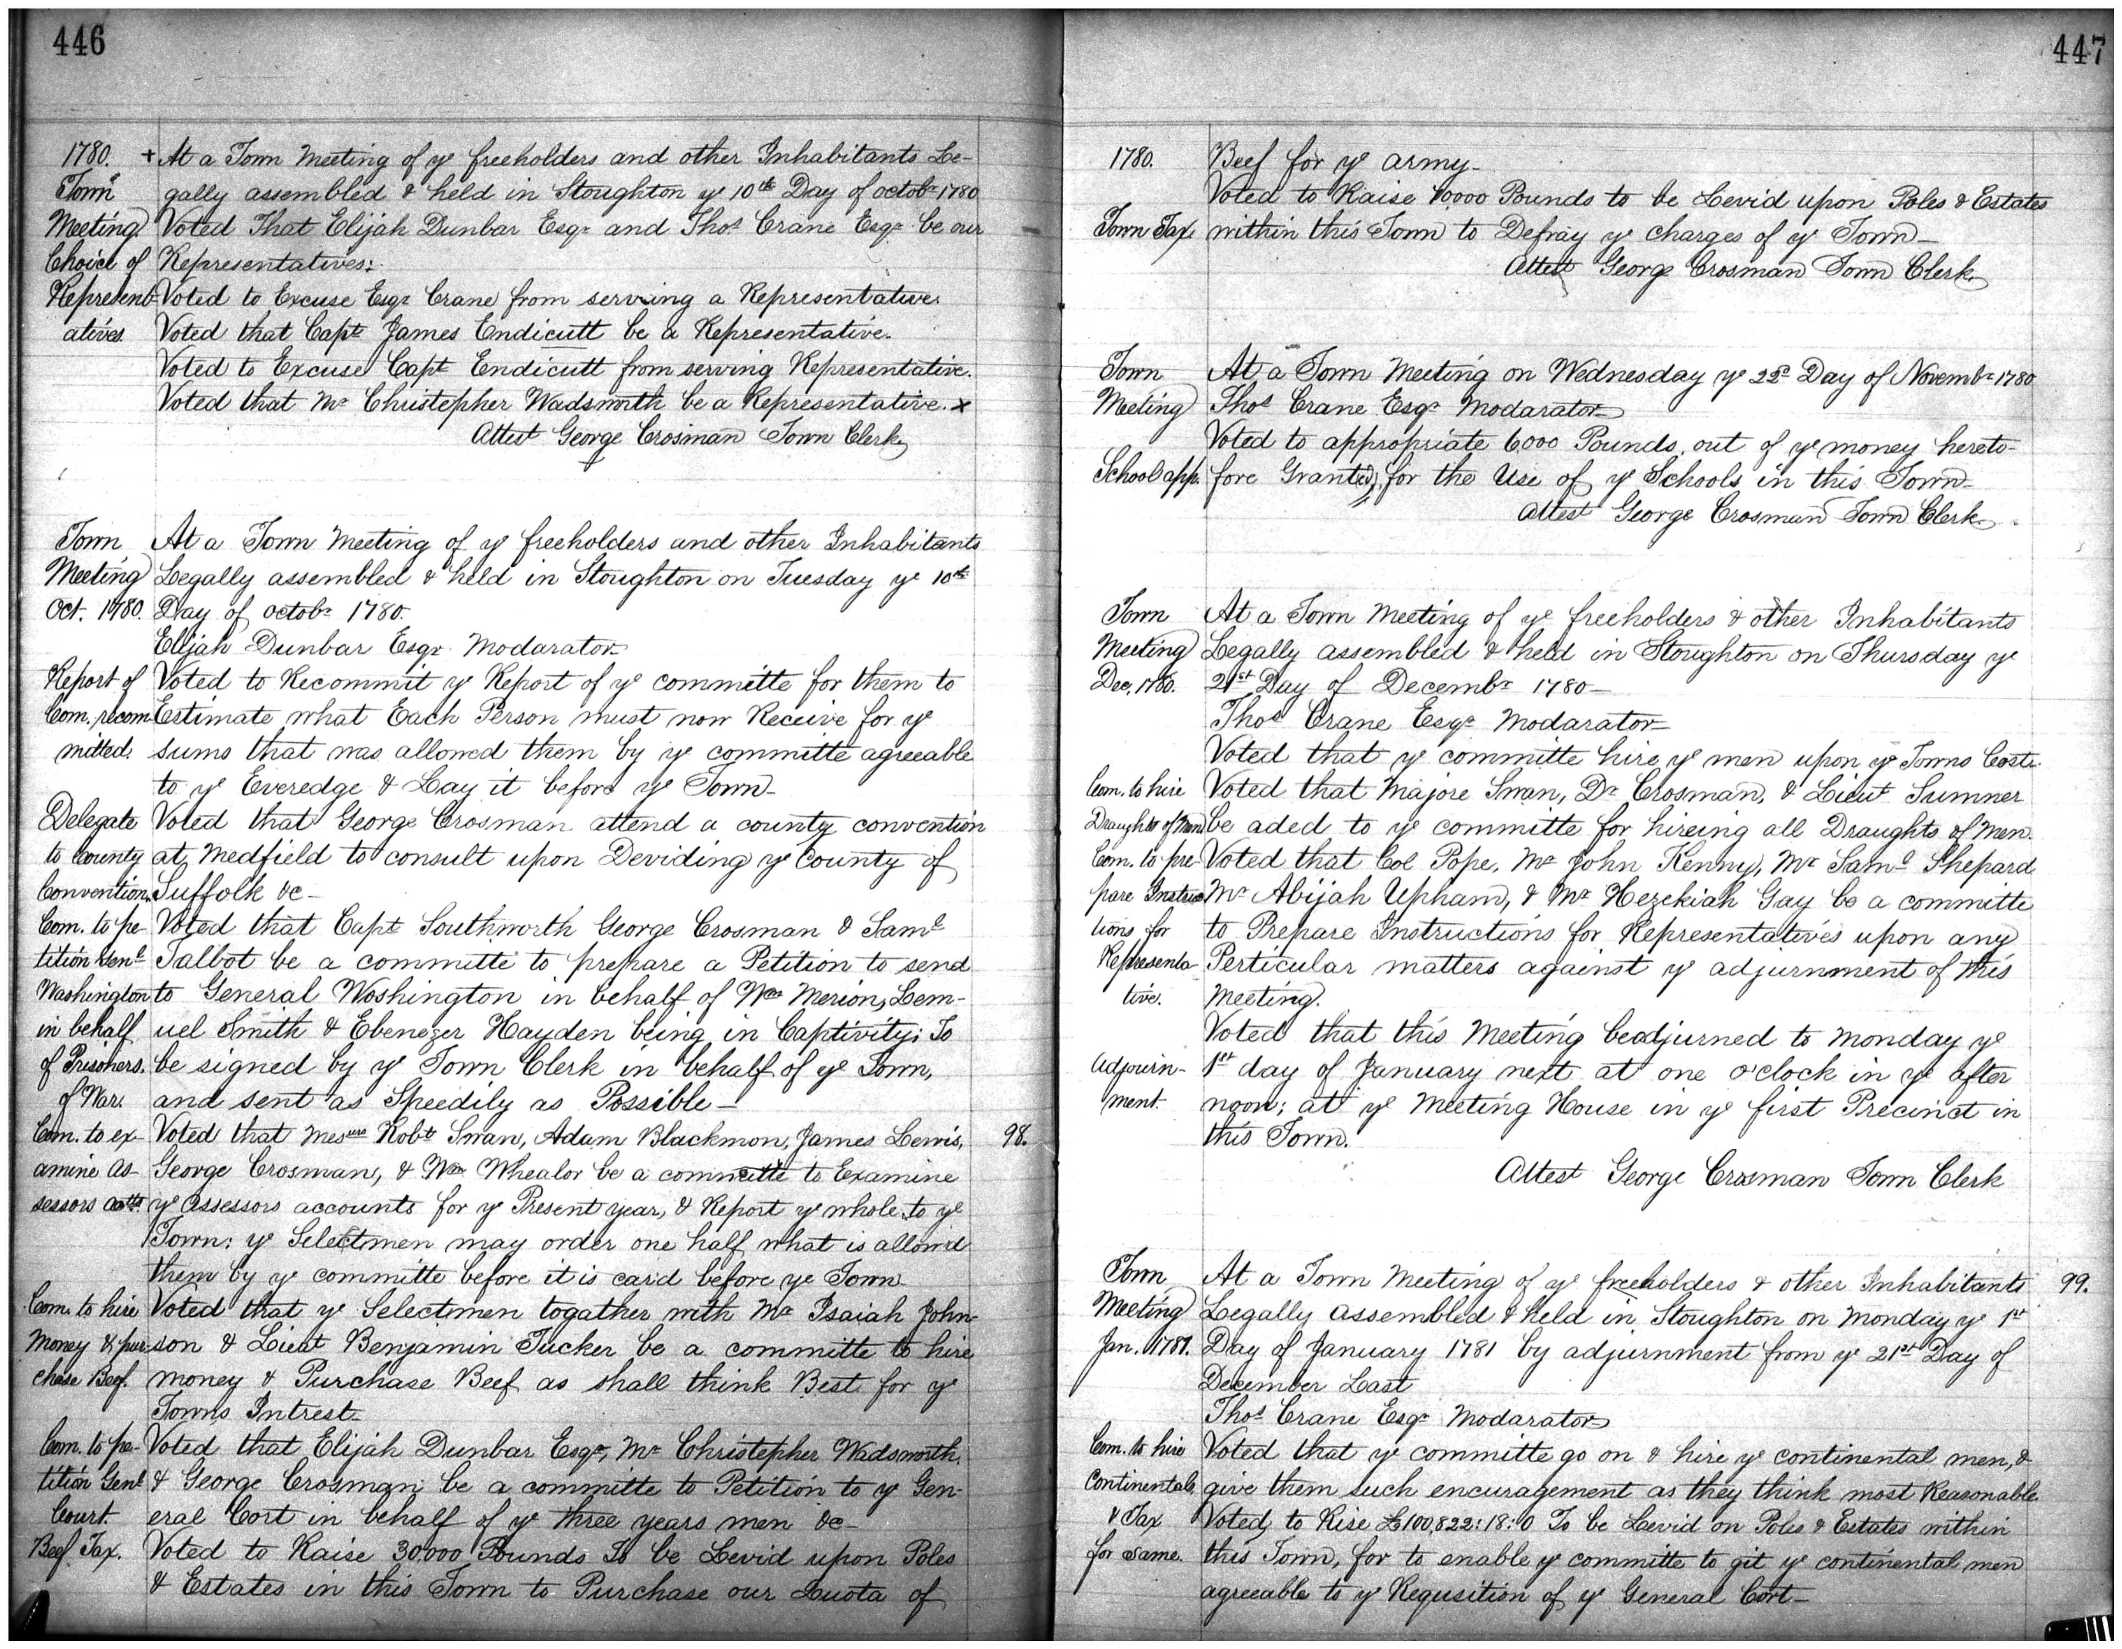 446
1780. + At a Town Meeting of ye freeholders and other Inhabitants Le-
Town gally assembled & held in Stoughton ye 10th Day of octobr 1780
Meeting Voted That Elijah Dunbar Esqr and Thos Crane Esqr be our
Choice of Representatives:
Represent- Voted to Excuse Esqr Crane from serving a Representative.
atives. Voted that Capt James Endicutt be a Representative.
Voted to Excuse Capt Endicutt from serving Representative.
Voted that Mr Christepher Wadsworth be a Representative. x
Attest George Crosman Town Clerk
Town At a Town Meeting of ye freeholders and other Inhabitants
Meeting Legally assembled & held in Stoughton on Tuesday ye 10th
Oct. 1780. Day of octobr 1780.
Elijah Dunbar Esqr Modarator
Report of Voted to Recommit ye Report of ye committe for them to
Com. recom- Estimate what Each Person must now Receive for ye
mitted. sums that was allowed them by ye committe agreeable
to ye Everedge & Lay it before ye Town-
Delegate Voted that George Crosman attend a county convention
to County at Medfield to consult upon Deviding ye County of
Convention. Suffolk &c-
Com. to pe- Voted that Capt Southworth George Crosman & Saml
tition Genl Talbot be a committe to prepare a Petition to send
Washington to General Washington in behalf of Wm Merion, Lem-
in behalf uel Smith & Ebenezer Hayden being in Captivity; To
of Prisoners. be signed by ye Town Clerk in behalf of ye Town,
of War. and sent as Speedily as Possible-
Com. to ex- Voted that Mesurs Robt Swan, Adam Blackmon, James Lewis, 98.
amine As- George Crosman, & Wm Whealor be a committe to Examine
sessors accts ye assessors accounts for ye Present year, & Report ye whole to ye
Town: ye Selectmen may order one half what is allow'd
them by ye committe before it is card before ye Town
Com. to hire Voted that ye Selectmen togather with Mr Isaiah John-
Money & pur- son & Lieut Benjamin Tucker be a committe to hire
chase Beef. money & Purchase Beef as shall think Best for ye
Towns Intrest-
Com. to pe- Voted that Elijah Dunbar Esqr, Mr Christepher Wadsworth,
tition Genl & George Crosman be a committe to Petition to ye Gen-
Court. eral Cort in behalf of ye three years men &c-
Beef Tax. Voted to Raise 30.000 Pounds To be Levid upon Poles
& Estates in this Town to Purchase our Quota of
447
1780. Beef for ye army-
Voted to Raise 10.000 Pounds to be Levid upon Poles & Estates
Town Tax. within this Town to Defray ye charges of ye Town-
Attest George Crosman Town Clerk
Town At a Town Meeting on Wednesday ye 22d Day of Novembr 1780
Meeting Thos Crane Esqr Modarator-
Voted to appropriate 6.000 Pounds, out of ye money hereto-
School app. fore Granted, for the Use of ye Schools in this Town-
Attest George Crosman Town Clerk.
Town At a Town Meeting of ye freeholders & other Inhabitants
Meeting Legally assembled & held in Stoughton on Thursday ye
Dec. 1780. 21st Day of Decembr 1780-
Thos Crane Esqr Modarator-
Voted that ye committe hire ye men upon ye Towns Cost.
Com. to hire Voted that Majore Swan, Dr Crosman, & Lieut Sumner
Draughts of Men be aded to ye committe for hireing all Draughts of Men.
Com. to pre- Voted that Col Pope, Mr John Kenny, Mr Saml Shepard
pare Instruc- Mr Abijah Upham, & Mr Hezekiah Gay be a committe
tions for to Prepare Instructions for Representatives upon any
Representa- Perticular matters against ye adjurnment of this
tive. Meeting.
Voted that this Meeting be adjurned to Monday ye
Adjourn- 1st day of January next at one o'clock in ye after
ment. noon; at ye Meeting House in ye first Precinct in
this Town.
Attest George Crosman Town Clerk
Town At a Town Meeting of ye freeholders & other Inhabitants 99.
Meeting Legally assembled & held in Stoughton on Monday ye 1st
Jan. 1781. Day of January 1781 by adjurnment from ye 21st Day of
December Last
Thos Crane Esqr Modarator
Com. to hire Voted that ye committe go on & hire ye continental men, &
Continentals, give them such encouragement as they think most Reasonable
& Tax Voted to Rise £100,822:18:0 To be Levid on Poles & Estates within
for same. this Town, for to enable ye committe to git ye continental men
agreeable to ye Requsition of ye General Cort-